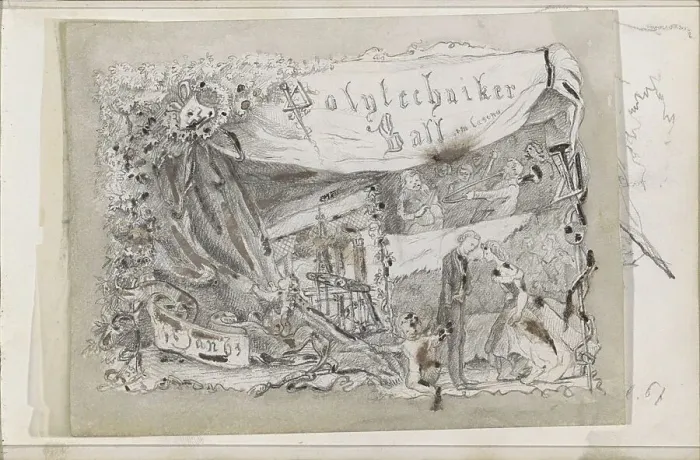 Polytechniker
Ball im Casino
Jan 63